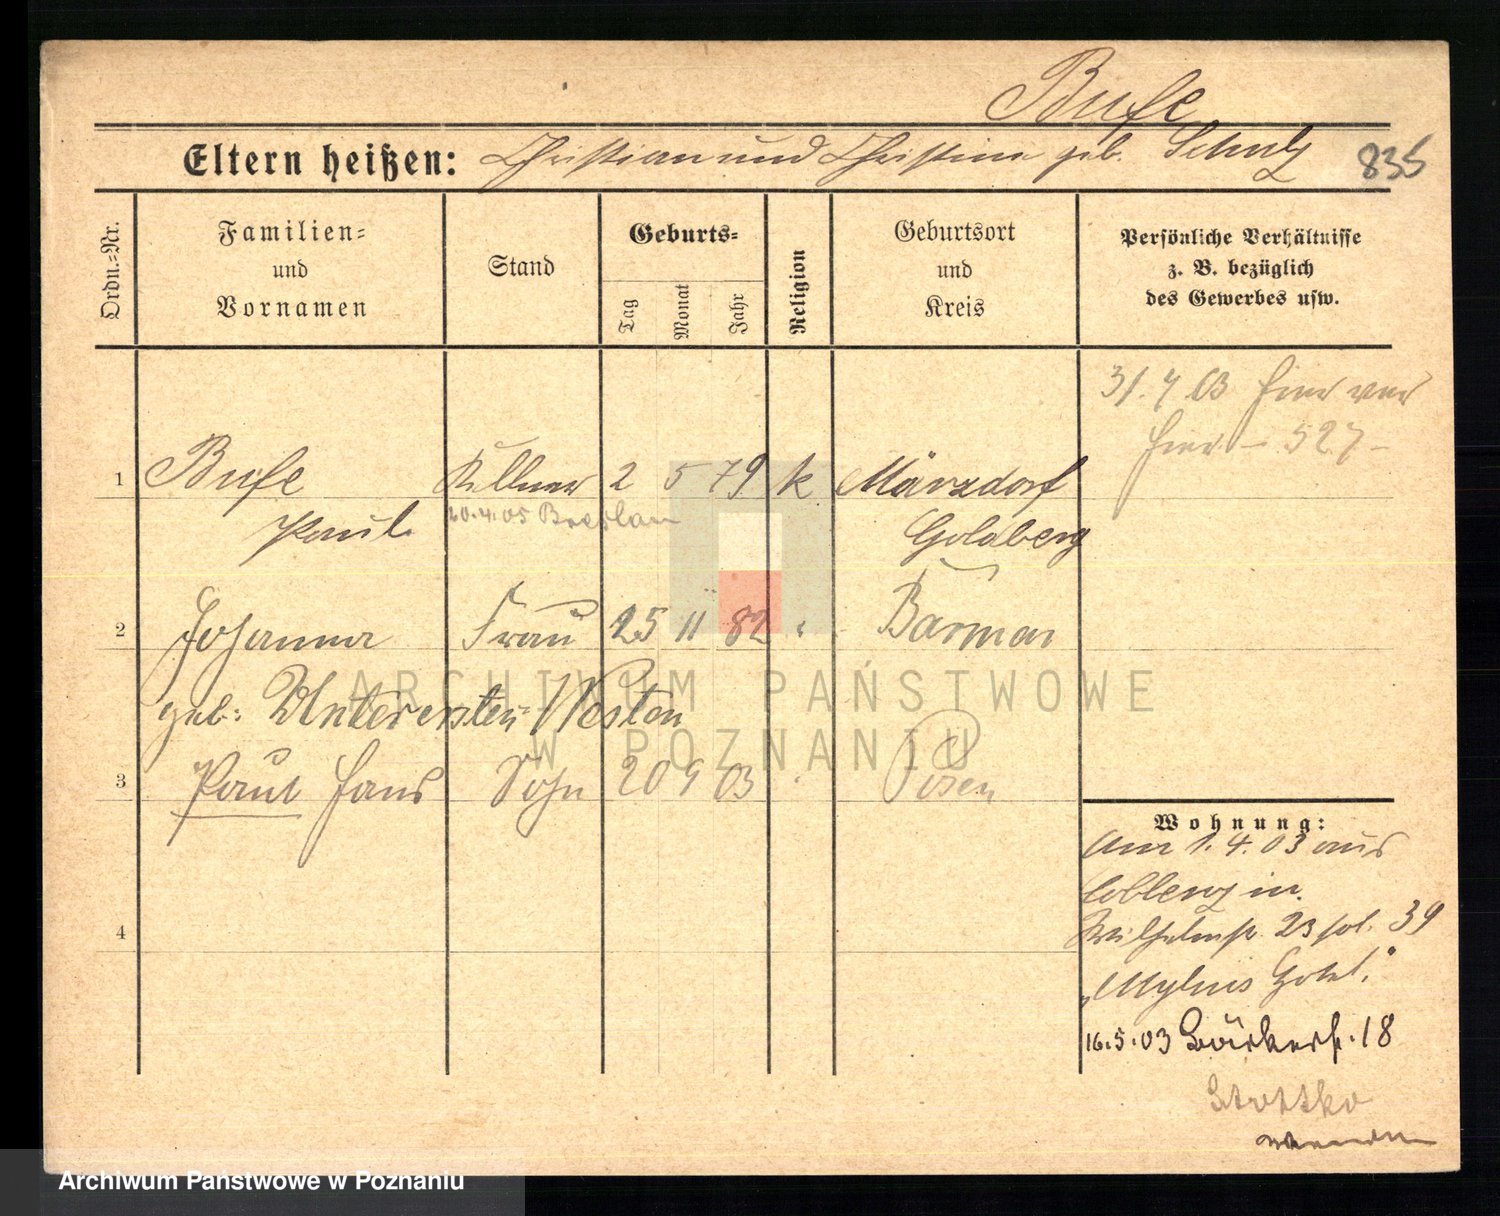 Bufe
Eltern heißen: Christian und Christine geb. Schulz 835
Ordn.-Nr.
Familien-
und
Vornamen
Stand
Geburts-
Tag
Monat
Jahr
Religion
Geburtsort
und
Kreis
Persönliche Verhältnisse
z. B. bezüglich
des Gewerbes usw.
31. 7 03
527
1 Bufe Kellner 2 5 79 k Märzdorf
20.4.05 Breslau
Paul Goldberg
2 Johanna Frau 25 11 82 Barmen
geb: Unterersten-Weston
3 Paul Hans Sohn 20 9 03 Posen
4
Wohnung:
Am 1. 4. 03 aus
Coblenz in
Wilhelmstr. 23 39
„Mylius Hotel."
16.5.03 Bäckerstr. 18
ARCHIWUM PAŃSTWOWE
W POZNANIU
Archiwum Państwowe w Poznaniu